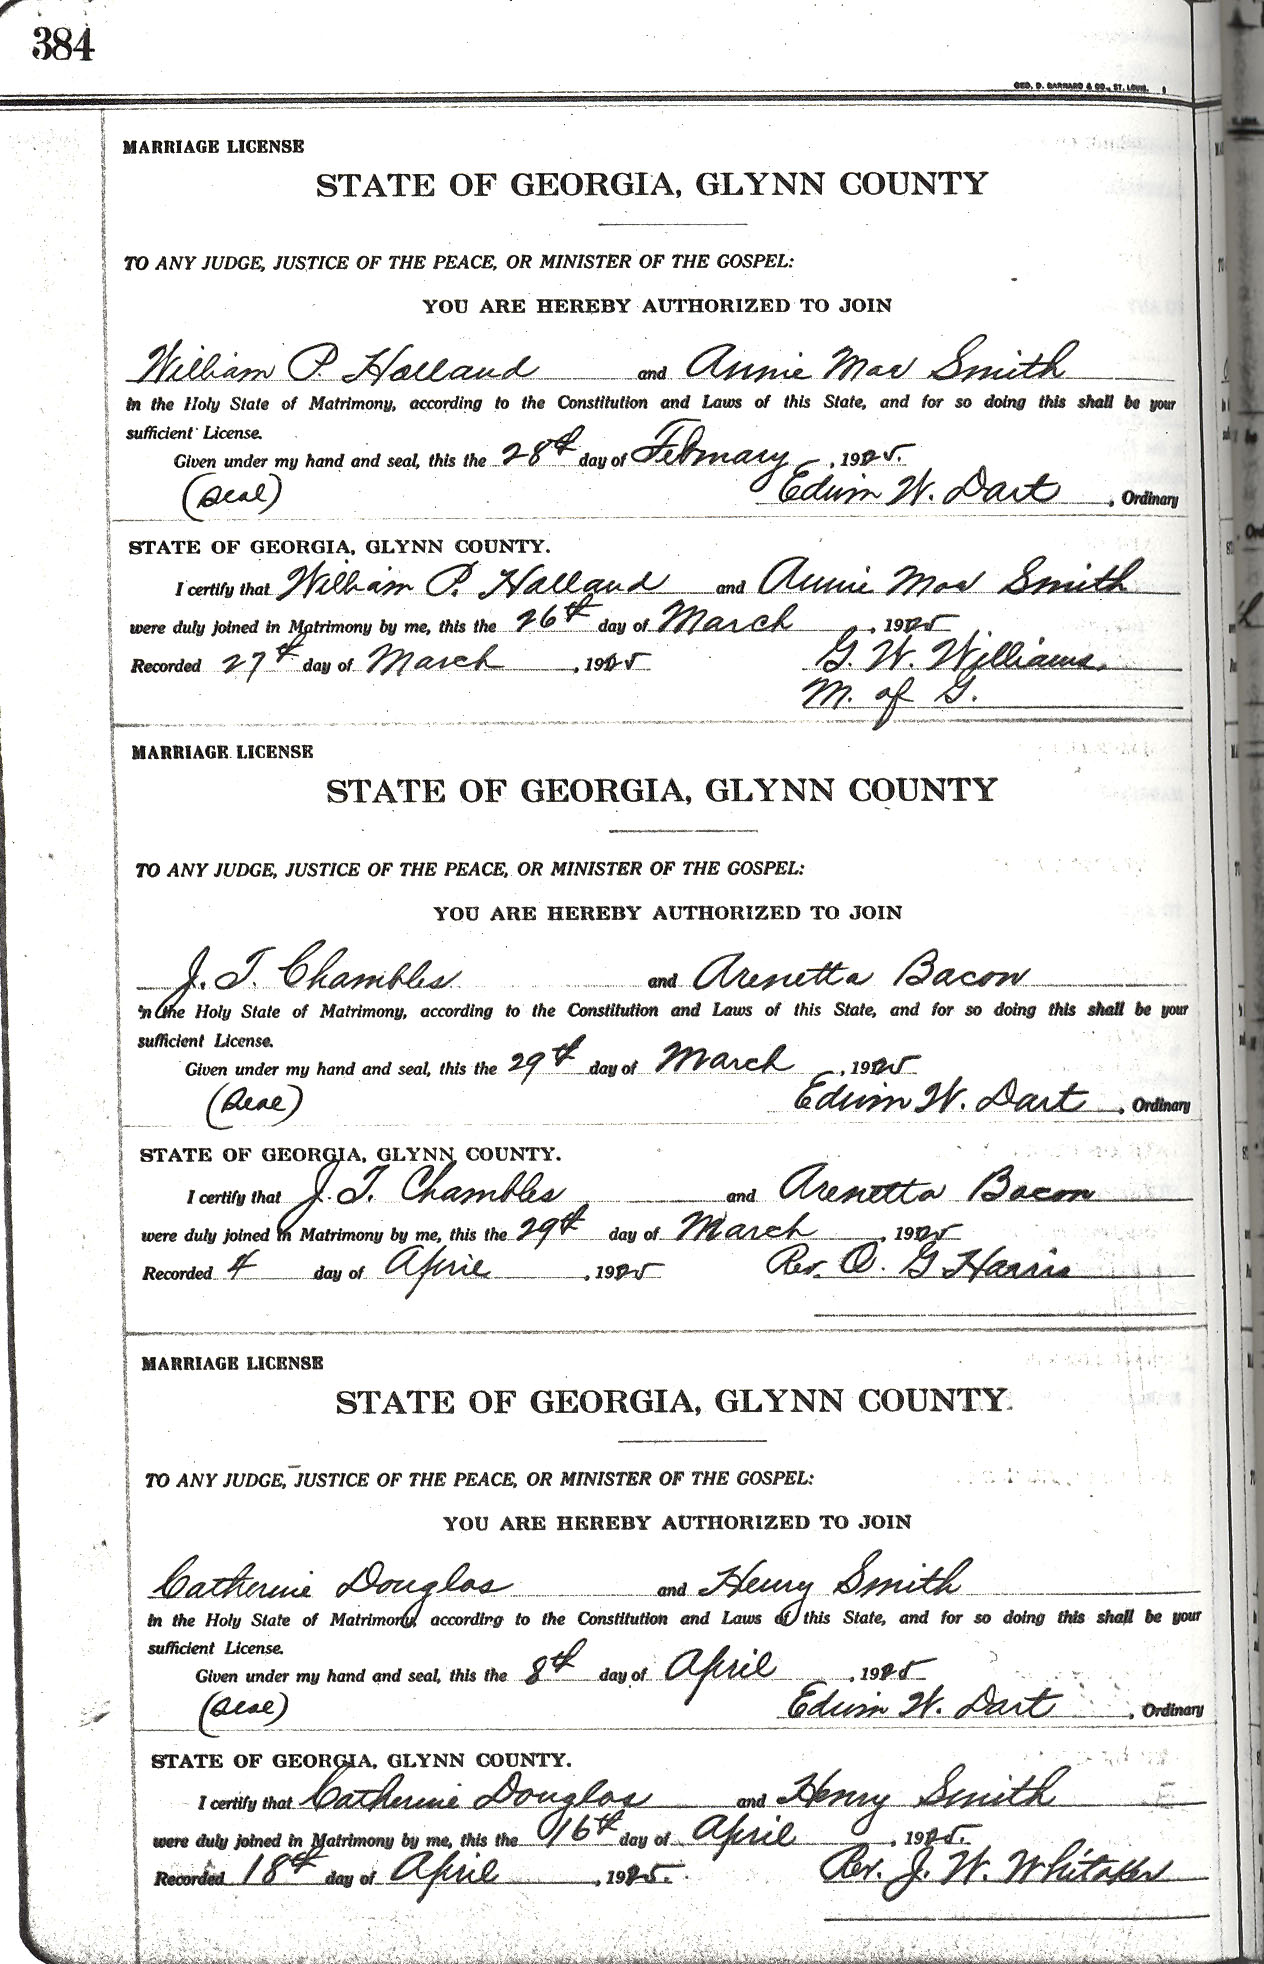 384
GEO. D. BARNARD & CO., ST. LOUIS.
MARRIAGE LICENSE
STATE OF GEORGIA, GLYNN COUNTY
TO ANY JUDGE, JUSTICE OF THE PEACE, OR MINISTER OF THE GOSPEL:
YOU ARE HEREBY AUTHORIZED TO JOIN
William P. Holland and Annie Mae Smith
in the Holy State of Matrimony, according to the Constitution and Laws of this State, and for so doing this shall be your
sufficient License.
Given under my hand and seal, this the 28th day of February, 1925.
(Seal) Edwin W. Dart, Ordinary
STATE OF GEORGIA, GLYNN COUNTY.
I certify that William P. Holland and Annie Mae Smith
were duly joined in Matrimony by me, this the 26th day of March, 1925
Recorded 27th day of March, 1925 G. W. Williams.
M. of G.
MARRIAGE LICENSE
STATE OF GEORGIA, GLYNN COUNTY
TO ANY JUDGE, JUSTICE OF THE PEACE, OR MINISTER OF THE GOSPEL:
YOU ARE HEREBY AUTHORIZED TO JOIN
J. T. Chambles and Arenetta Bacon
in the Holy State of Matrimony, according to the Constitution and Laws of this State, and for so doing this shall be your
sufficient License.
Given under my hand and seal, this the 29th day of March, 1925
(Seal) Edwin W. Dart, Ordinary
STATE OF GEORGIA, GLYNN COUNTY.
I certify that J. T. Chambles and Arenetta Bacon
were duly joined in Matrimony by me, this the 29th day of March, 1925
Recorded 4 day of April, 1925 Rev. O. G Harris
MARRIAGE LICENSE
STATE OF GEORGIA, GLYNN COUNTY.
TO ANY JUDGE, JUSTICE OF THE PEACE, OR MINISTER OF THE GOSPEL:
YOU ARE HEREBY AUTHORIZED TO JOIN
Catherine Douglas and Henry Smith
in the Holy State of Matrimony, according to the Constitution and Laws of this State, and for so doing this shall be your
sufficient License.
Given under my hand and seal, this the 8th day of April, 1925
(Seal) Edwin W. Dart, Ordinary
STATE OF GEORGIA, GLYNN COUNTY.
I certify that Catherine Douglas and Henry Smith
were duly joined in Matrimony by me, this the 16th day of April, 1925.
Recorded 18th day of April, 1925. Rev. J. W. Whitaker